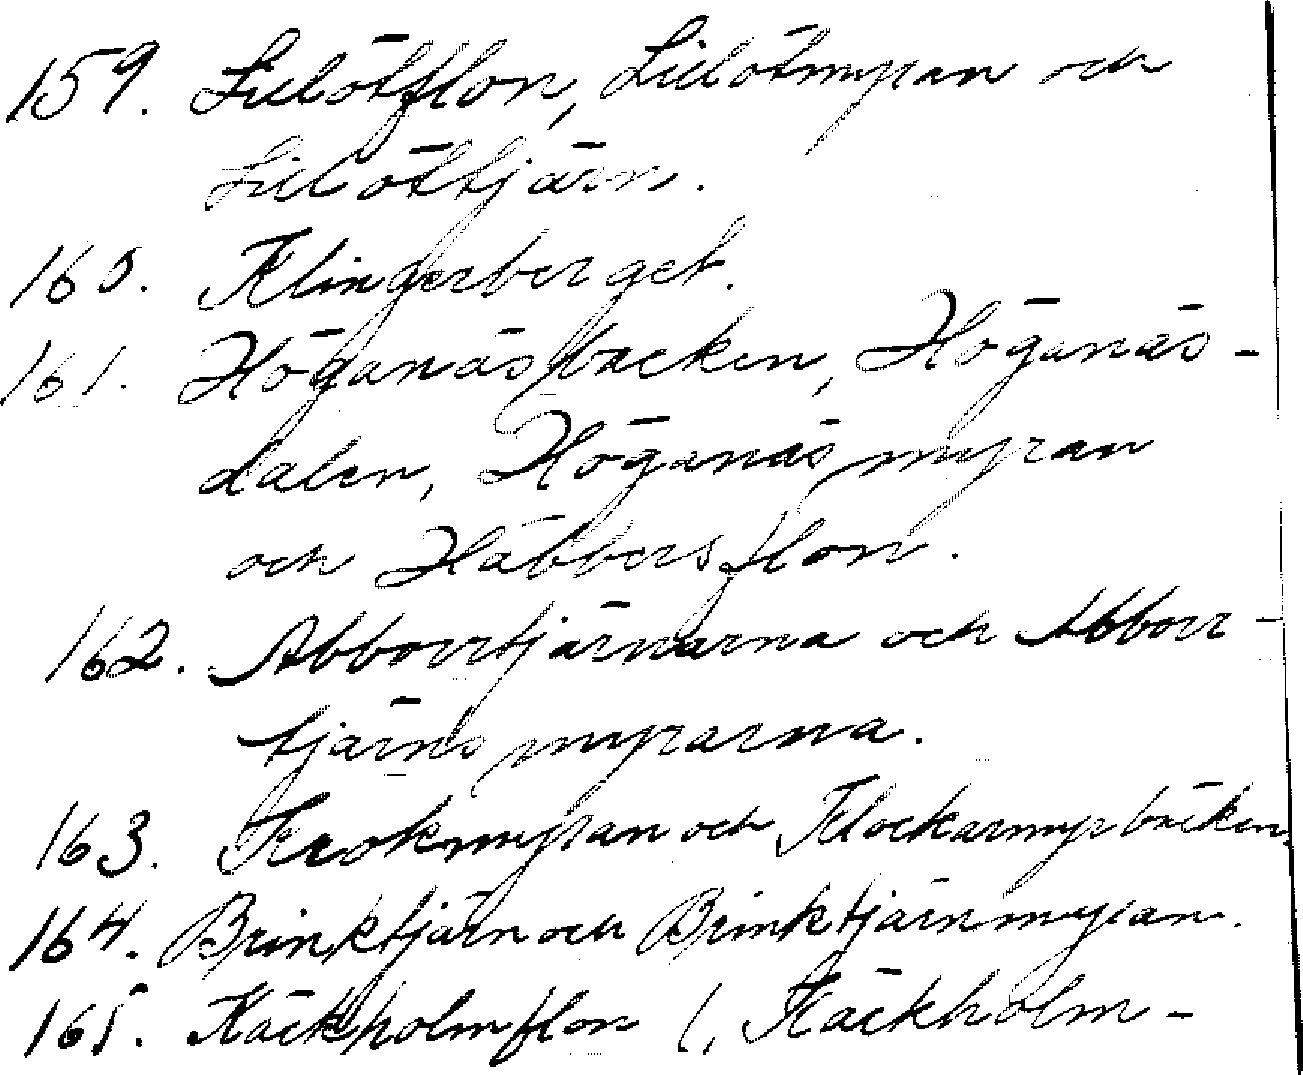 159. Lillötflon, Lillötmyran och
Lillöttjärn.
160. Klingerberget.
161. Höganäsbacken, Höganäs-
dalen, Höganäsmyran
och Häbbersflon.
162. Abborrtjärnarna och Abborr-
tjärnsmyrarna.
163. Krokmyran och Klockarmyrbäcken
164. Brinktjärn och Brinktjärnmyran.
165. Käckholmflon (, Käckholm-